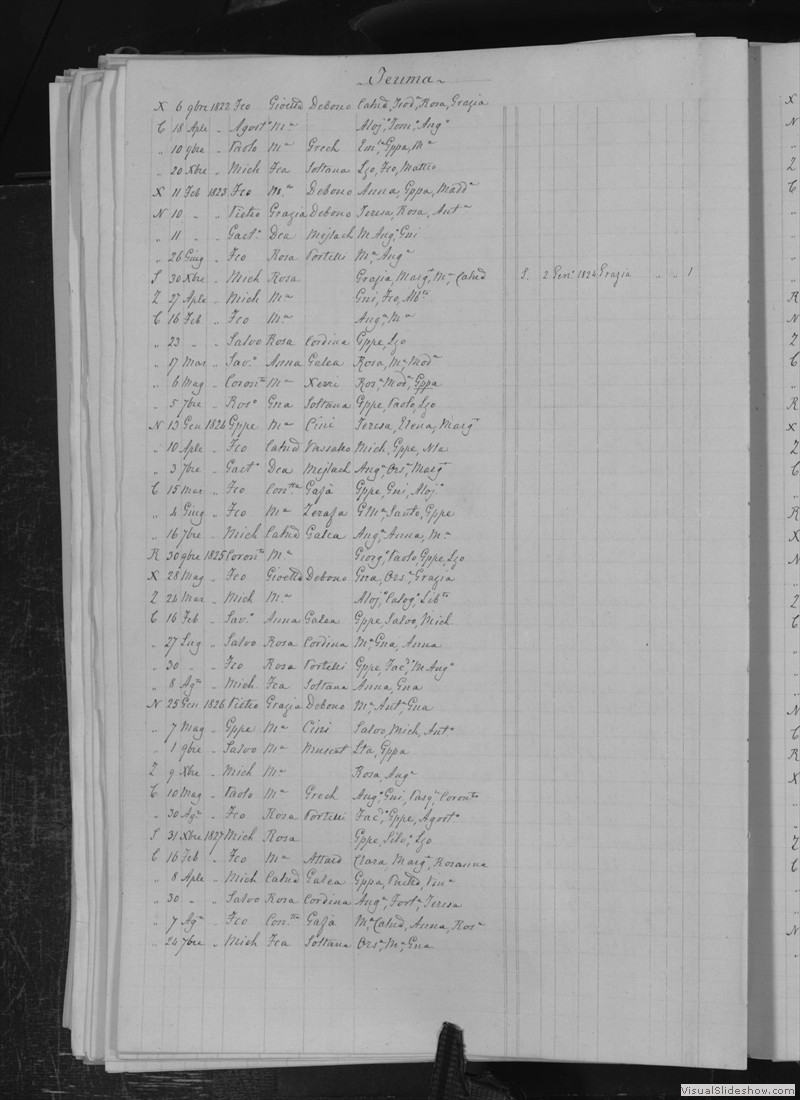 Teuma
X 6 9bre 1822 Fco Gioetta Debono Catnd, Teod, Rosa, Grazia
C 18 Aple „ Agosto Ma Aloja, Toma, Anga
„ 10 9bre „ Paolo Ma Grech Gppa, Ma
„ 20 Xbre „ Mich Fca Soltana Lzo, Fco, Matteo
X 11 Feb 1823 Fco Ma Debono Anna, Gppa, Madda
N 10 „ „ Pietro Grazia Debono Teresa, Rosa, Anta
„ 11 „ „ Gaeto Dca Mejlach M Anga, Gni
„ 26 Giug „ Fco Rosa Portelli Ma, Anga
S 30 Xbre „ Mich Rosa Grazia, Marga, Ma, Catnd S. 2 Geno 1824 Grazia „ „ 1
Z 27 Aple „ Mich Ma Gni, Fco, Albto
C 16 Feb „ Fco Ma Anga, Ma
„ 23 „ „ Salvo Rosa Cordina Gppe, Lzo
„ 17 Mar „ Savo Anna Galea Rosa, Ma, Moda
„ 6 Mag „ Coronto Ma Xerri Rosa, Moda, Gppa
„ 5 7bre „ Roso Gna Soltana Gppe, Paolo, Lzo
N 13 Gen 1824 Gppe Ma Cini Teresa, Elena, Marga
„ 10 Aple „ Fco Catnd Vassallo Mich, Gppe, Nla
„ 3 7bre „ Gaeto Dca Mejlach Anga, Orsa, Marga
C 15 Mar „ Fco Contta Gafà Gppe, Gni, Alojo
„ 4 Giug „ Fco Ma Zerafa G Ma, Santo, Gppe
„ 16 7bre „ Mich Catnd Galea Anga, Anna, Ma
R 30 9bre 1825 Coronto Ma Giorgo, Paolo, Gppe, Lzo
X 28 Mag „ Fco Gioetta Debono Gna, Orsa, Grazia
Z 24 Mar „ Mich Ma Alojo, Calogo, Libto
C 16 Feb „ Savo Anna Galea Gppe, Salvo, Mich
„ 27 Lug „ Salvo Rosa Cordina Ma, Gna, Anna
„ 30 „ „ Fco Rosa Portelli Gppe, Faca, M Anga
„ 8 Ago „ Mich Fca Soltana Anna, Gna
N 25 Gen 1826 Pietro Grazia Debono Ma, Anta, Gna
„ 7 Mag „ Gppe Ma Cini Salvo, Mich, Anto
„ 1 9bre „ Salvo Ma Muscat Lta, Gppa
Z 9 Xbre „ Mich Ma Rosa, Anga
C 10 Mag „ Paolo Ma Grech Ango, Gni, Pasqe, Coronto
„ 30 Ago „ Fco Rosa Portelli Faca, Gppe, Agosto
S 31 Xbre 1827 Mich Rosa Gppe, Silvo, Lzo
C 16 Feb „ Fco Ma Attard Clara, Marga, Rosanna
„ 8 Aple „ Mich Catnd Galea Gppa, Pietro, Vina
„ 30 „ „ Salvo Rosa Cordina Anga, Forta, Teresa
„ 7 Ago „ Fco Contta Gafà Ma, Catnd, Anna, Rosa
„ 24 7bre „ Mich Fca Soltana Orsa, Ma, Gna
VisualSlideshow.com